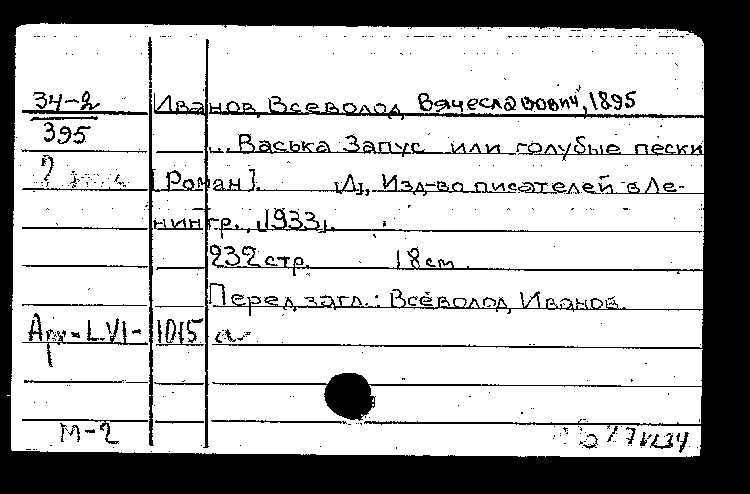 34-2 Иванов, Всеволод Вячеславович, 1895
395 ...Васька Запус или голубые пески
[Роман]. [Л], Изд-во писателей в Ле-
нингр., [1933].
232 стр. 18 cm.
Перед загл.: Всеволод Иванов.
Арх-LVI-1015 а
М-2